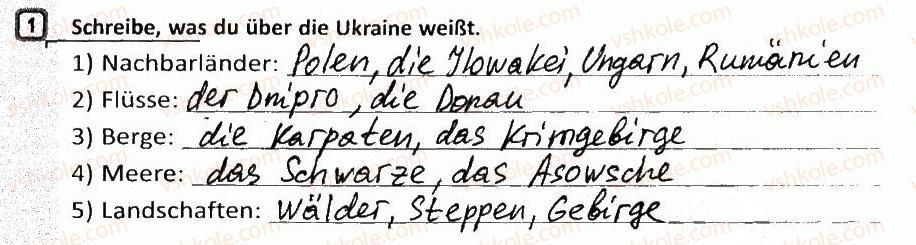 1 Schreibe, was du über die Ukraine weißt.
1) Nachbarländer: Polen, die Slowakei, Ungarn, Rumänien
2) Flüsse: der Dnipro, die Donau
3) Berge: die Karpaten, das Krimgebirge
4) Meere: das Schwarze, das Asowsche
5) Landschaften: Wälder, Steppen, Gebirge